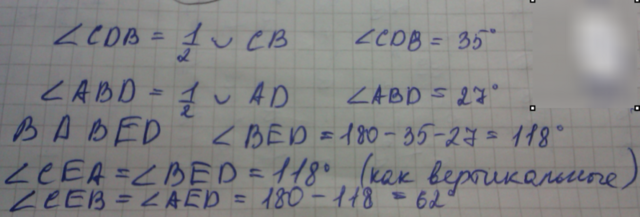 ∠CDB = 1/2 ◡ CB ∠CDB = 35°
∠ABD = 1/2 ◡ AD ∠ABD = 27°
В Δ BED ∠BED = 180-35-27 = 118°
∠CEA = ∠BED = 118° (как вертикальные)
∠CEB = ∠AED = 180-118 = 62°